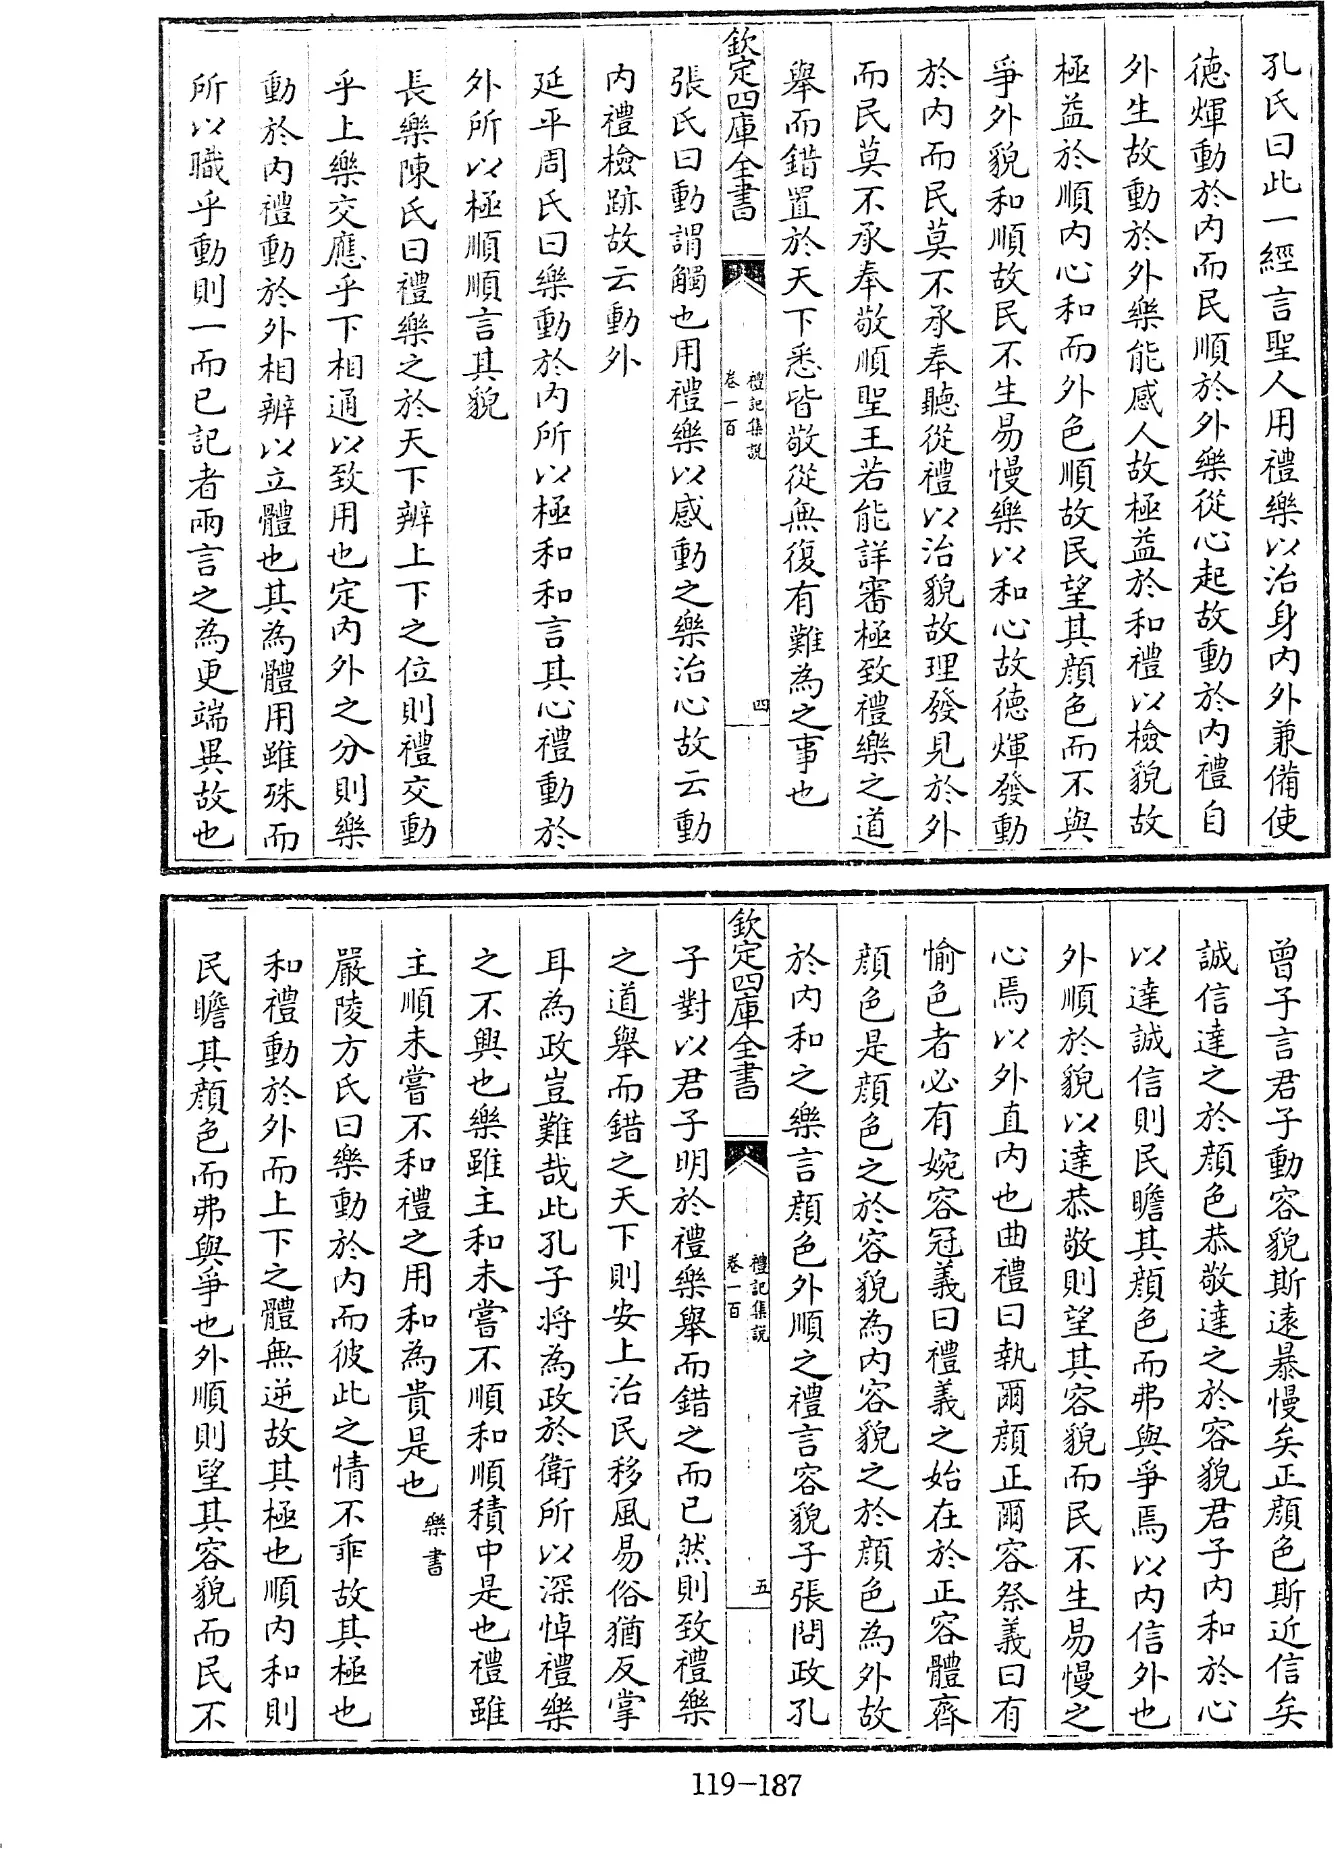 孔氏曰此一經言聖人用禮樂以治身内外兼備使
德煇動於内而民順於外樂從心起故動於内禮自
外生故動於外樂能感人故極益於和禮以檢貌故
極益於順内心和而外色順故民望其顔色而不與
爭外貌和順故民不生易慢樂以和心故德煇發動
於内而民莫不承奉聽從禮以治貌故理發見於外
而民莫不承奉敬順聖王若能詳審極致禮樂之道
舉而錯置於天下悉皆敬從無復有難為之事也
欽定四庫全書
禮記集説
卷一百
四
張氏曰動謂觸也用禮樂以感動之樂治心故云動
内禮檢跡故云動外
延平周氏曰樂動於内所以極和和言其心禮動於
外所以極順順言其貌
長樂陳氏曰禮樂之於天下辨上下之位則禮交動
乎上樂交應乎下相通以致用也定内外之分則樂
動於内禮動於外相辨以立體也其為體用雖殊而
所以職乎動則一而已記者兩言之為更端異故也
曾子言君子動容貌斯遠暴慢矣正顔色斯近信矣
誠信達之於顔色恭敬達之於容貌君子内和於心
以達誠信則民瞻其顔色而弗與爭焉以内信外也
外順於貌以達恭敬則望其容貌而民不生易慢之
心焉以外直内也曲禮曰執爾顔正爾容祭義曰有
愉色者必有婉容冠義曰禮義之始在於正容體齊
顔色是顔色之於容貌為内容貌之於顔色為外故
於内和之樂言顔色外順之禮言容貌子張問政孔
欽定四庫全書
禮記集説
卷一百
五
子對以君子明於禮樂舉而錯之而已然則致禮樂
之道舉而錯之天下則安上治民移風易俗猶反掌
耳為政豈難哉此孔子將為政於衛所以深悼禮樂
之不興也樂雖主和未嘗不順和順積中是也禮雖
主順未嘗不和禮之用和為貴是也樂書
嚴陵方氏曰樂動於内而彼此之情不乖故其極也
和禮動於外而上下之體無逆故其極也順内和則
民瞻其顔色而弗與爭也外順則望其容貌而民不
119-187